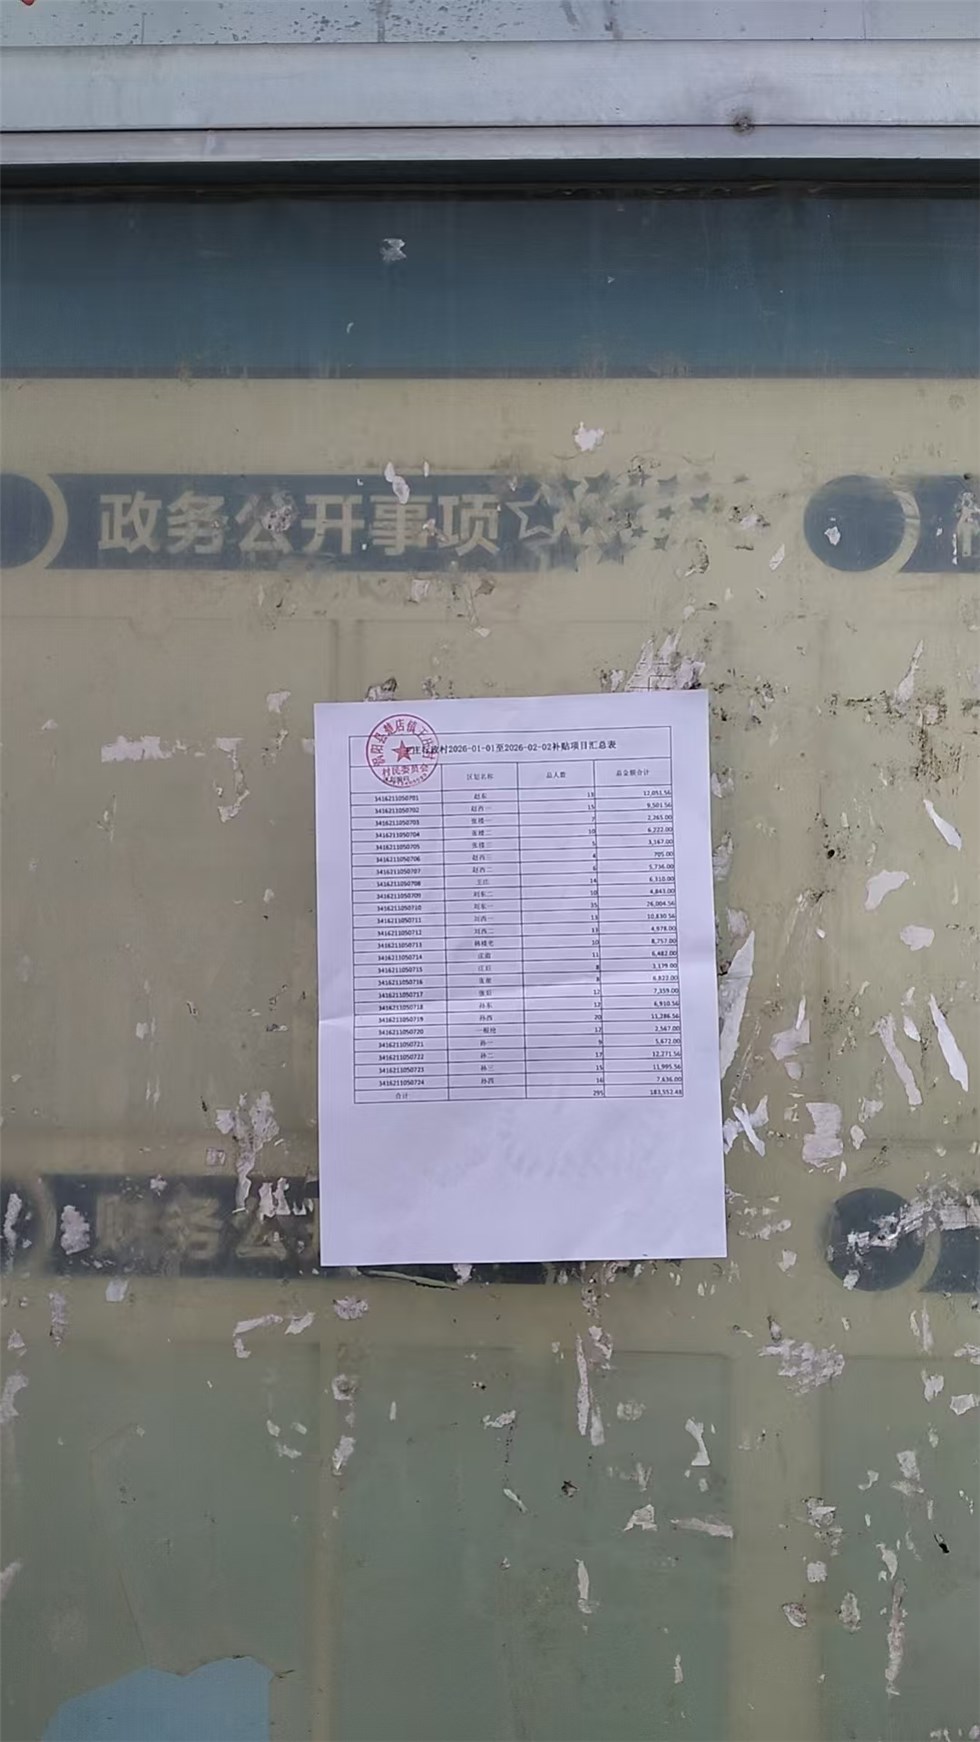 政务公开事项
村2026-01-01至2026-02-02补贴项目汇总表
村民委员会
区划名称 总人数 总金额合计
3416211050701 赵东 13 12,051.56
3416211050702 赵西一 15 9,501.56
3416211050703 张楼一 7 2,265.00
3416211050704 张楼二 10 6,222.00
3416211050705 张楼三 5 3,167.00
3416211050706 赵西三 4 705.00
3416211050707 赵西二 6 5,736.00
3416211050708 王庄 14 6,310.00
3416211050709 刘东二 10 4,843.00
3416211050710 刘东一 35 26,004.56
3416211050711 刘西一 13 10,830.56
3416211050712 刘西二 13 4,978.00
3416211050713 10 8,757.00
3416211050714 11 6,482.00
3416211050715 江后 8 3,179.00
3416211050716 8 6,822.00
3416211050717 张后 12 7,359.00
3416211050718 孙东 12 6,910.56
3416211050719 孙西 20 11,286.56
3416211050720 12 2,567.00
3416211050721 孙一 9 5,672.00
3416211050722 孙二 17 12,271.56
3416211050723 孙三 15 11,995.56
3416211050724 孙四 16 7,636.00
合计 295 183,552.48
财务公